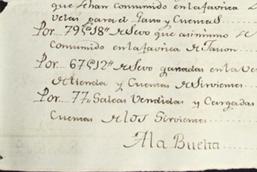 que se han consumido en la favrica de
velas para el Gasto y Cuentas
Por 79@18" de Sevo que asimismo se
Consumido en la favrica de Javon
Por 67@12" de Sevo ganada en la Ven
de tienda y Cuentas de Sirvientes
Por 77 Saleas Vendidas y Cargadas
Cuentas de los Sirvientes
A la Buelta